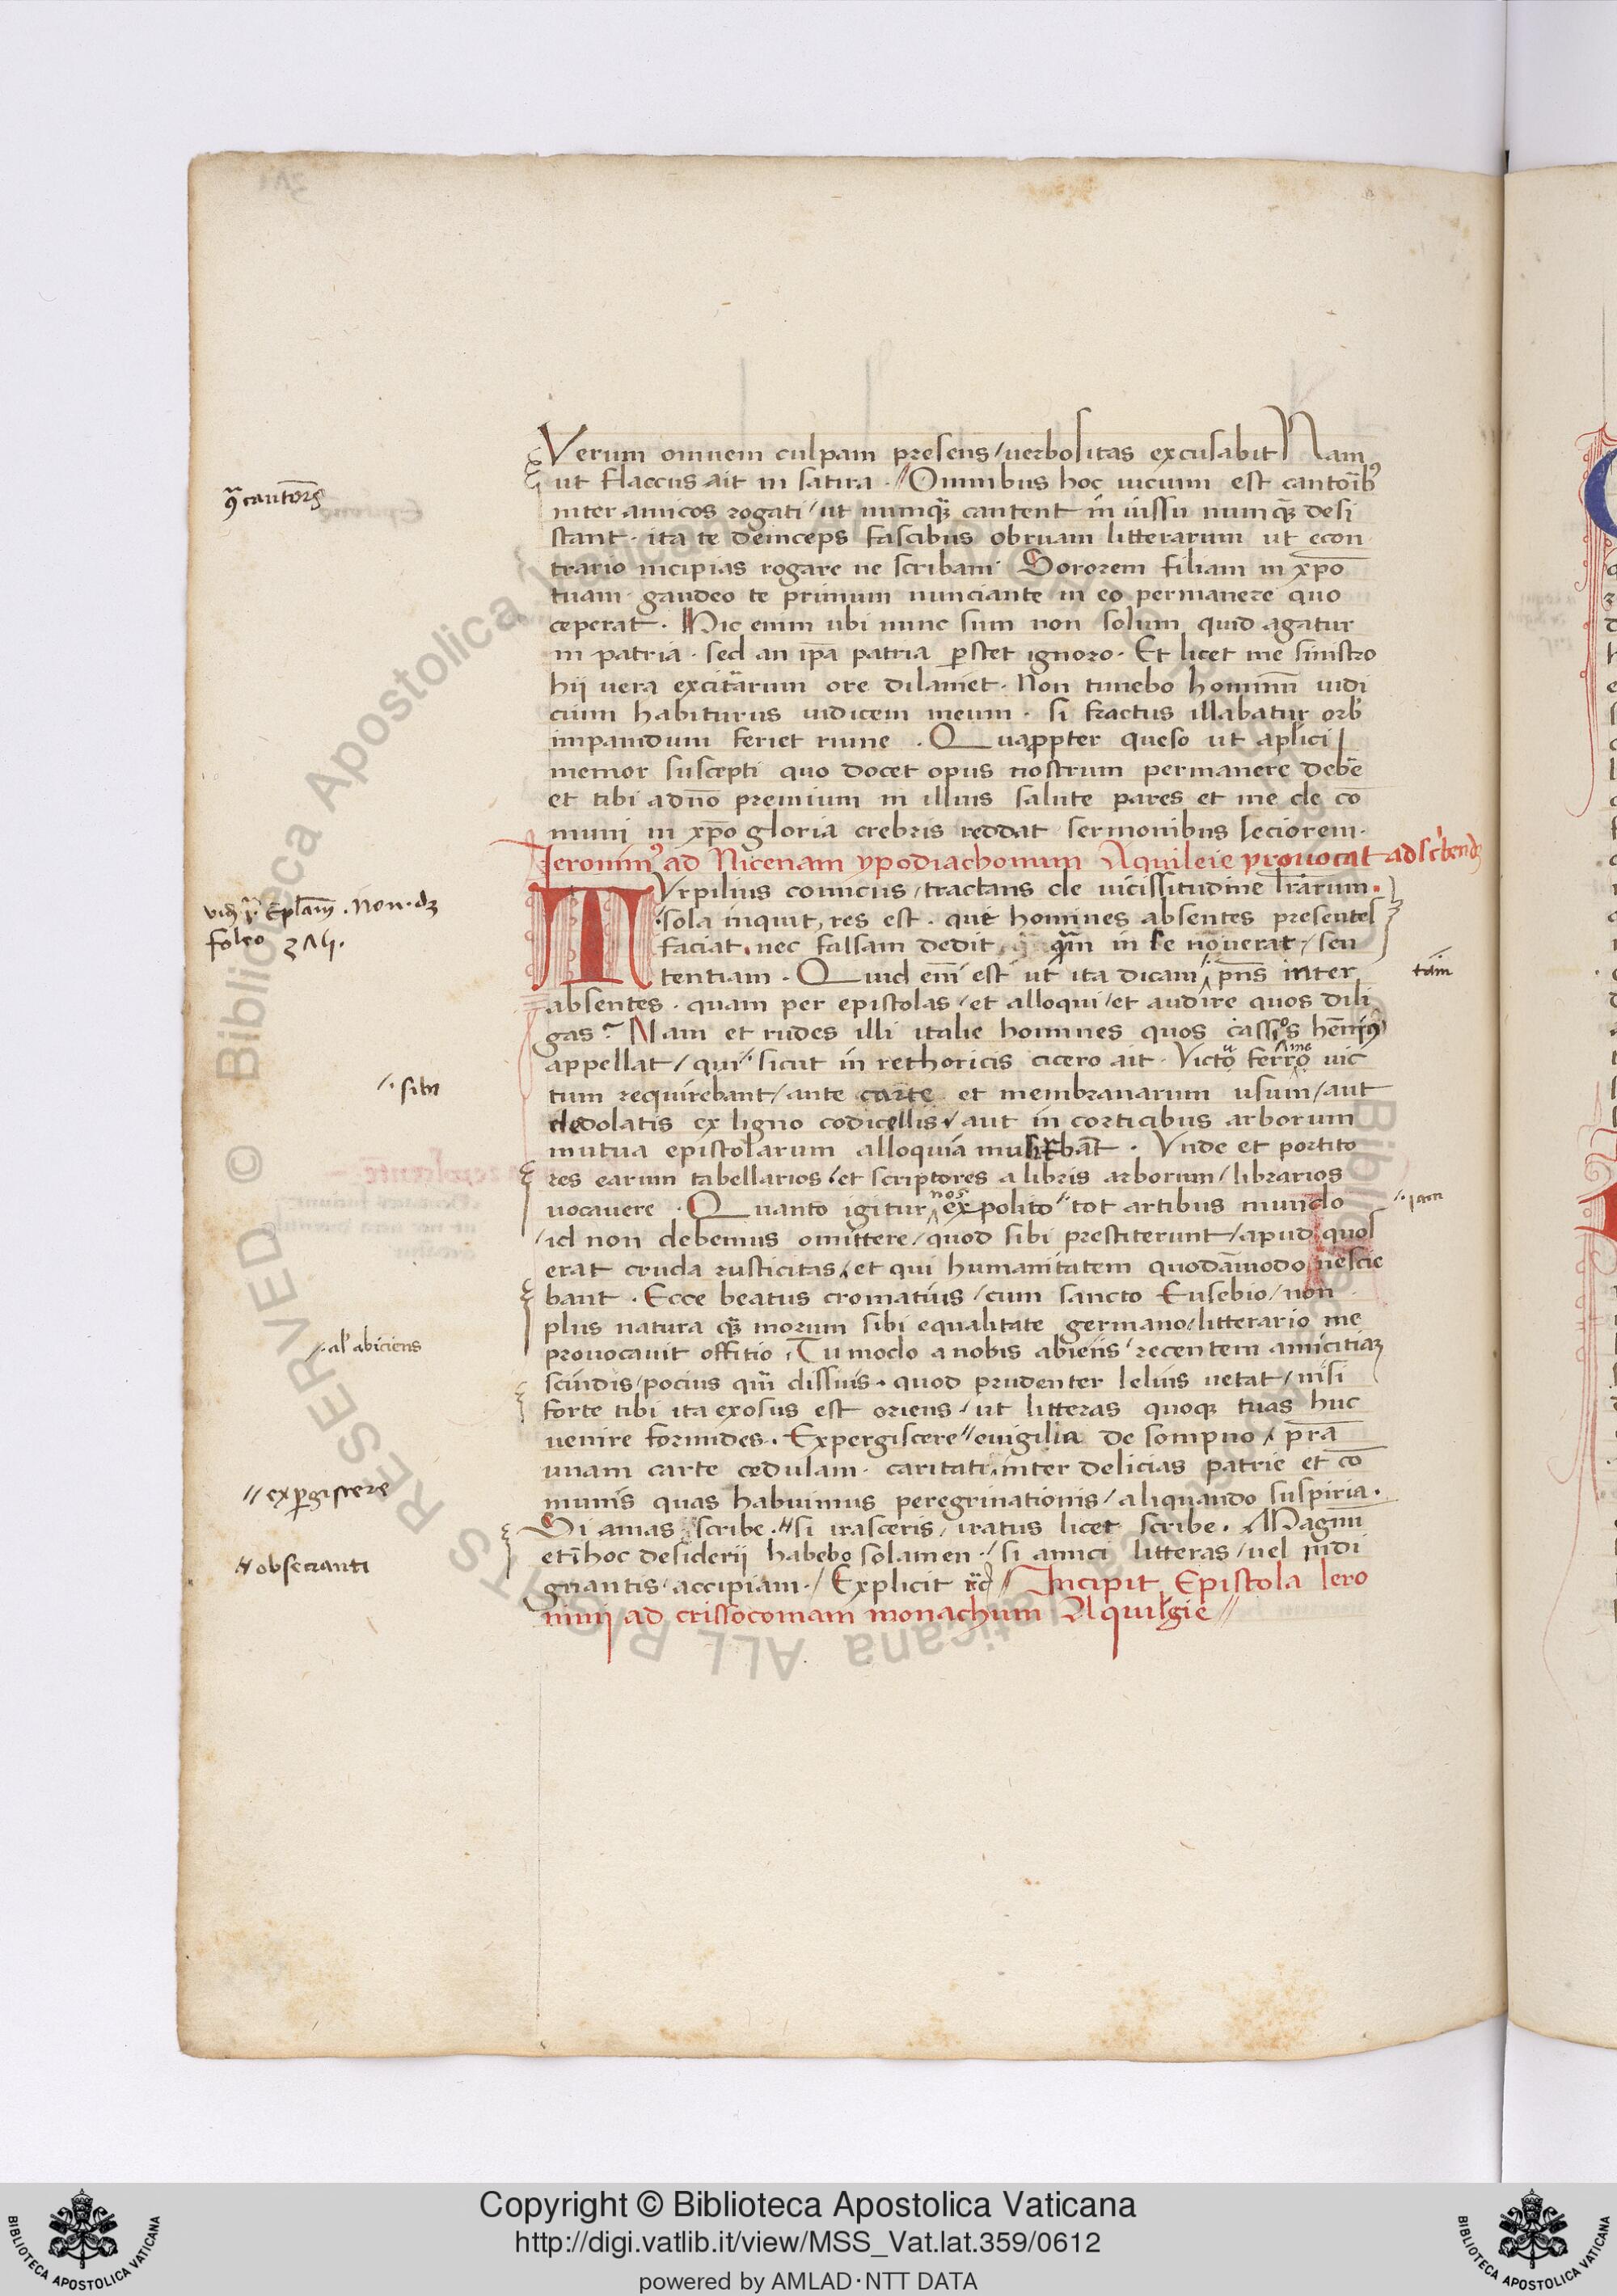 Verum omnem culpam presens / uerbositas excusabit Nam
ut flaccus ait in satira · // Omnibus hoc uicium est cantoribꝰ
qͣ cantores
inter amicos rogati / ut numqͣ cantent in iussu numqͣ desi
stant · ita te deinceps fascibus obruam litterarum ut econ
trario incipias rogare ne scribam · Sororem filiam in xp̄o
tuam gaudeo te primum nunciante in eo permanere quo
ceperat · Hic enim ubi nunc sum non solum quid agatur
in patria · sed an ip̄a patria p̄stet ignoro · Et licet me sinistro
hij uera excitarum ore dilaniet · Non timebo hominū iudi
cium habiturus iudicem meum · si fractus illabatur orb
impauidum feriet ruine · Quappter queso ut apl̄ici
memor suscepti quo docet opus nostrum permanere debē
et tibi adn̄o premium in illius salute pares et me de cō
muni in xp̄o gloria crebris reddat sermonibus leciorem ·
Ieronimꝰ ad Nicenam ypodiachonum Aquileie prouocat ad scͥbendꝫ
TVrpilius comicus / tractans de uicissitudine lr̄arum ·
sola inquit, res est · que homines absentes presentes
faciat · nec falsam dedit, qͣm in se nōuerat / sen
folio 2Λ4 ·
tentiam · Quid em̄ est ut ita dicam / pn̄s inter
tam
absentes · quam per epistolas / et alloqui / et audire quos dili
gas ? Nam et rudes illi italie homines quos cassiͦs hēniꝰ
appellat / qui · sicut in rethoricis cicero ait · Victō ferro uic
· sibi
tum requirebant / ante carte et membranarum usum / aut
dedolatis ex ligno codicellis / aut in corticibus arborum
mutua epistolarum alloquia
Vnde et portito
res earum tabellarios / et scriptores a libris arborum / librarios
uocauere · Quanto igitur nos expolito // tot artibus mundo
· iam
/ id non debemus omittere / quod sibi prestiterunt / apud quos
erat cruda rusticitas / et qui humanitatem quodāmodo nescie
bant · Ecce beatus cromatius / cum sancto Eusebio / non
plus natura qͣ morum sibi equalitate germano / litterario me
prouocauit offitio · Tu modo a nobis abiens / recentem amicitiaꝫ
al' abiciens
scindis / pocius qm̄ dissuis · quod prudenter lelius uetat / nisi
forte tibi ita exosus est oriens / ut litteras quoqꝫ tuas huc
uenire formides · Expergiscere // euigilia de sompno / pr̄a
unam carte cedulam · caritati / inter delicias patrie et cō
// exp̄giscere
munis quas habuimus peregrinationis / aliquando suspiria ·
Si amas scribe · // si irasceris / iratus licet scribe · Magni
// obsecranti
et ī hoc desiderij habebo solamen · / si amici litteras / uel indi
gnantis · accipiam · / Explicit // Incipit Epistola Iero
nimi ad crissocomam monachum Aquilgie //
© Biblioteca Apostolica Vaticana ALL RIGHTS RESERVED
Copyright © Biblioteca Apostolica Vaticana
http://digi.vatlib.it/view/MSS_Vat.lat.359/0612
powered by AMLAD·NTT DATA
BIBLIOTECA APOSTOLICA VATICANA
BIBLIOTECA APOSTOLICA VATICANA